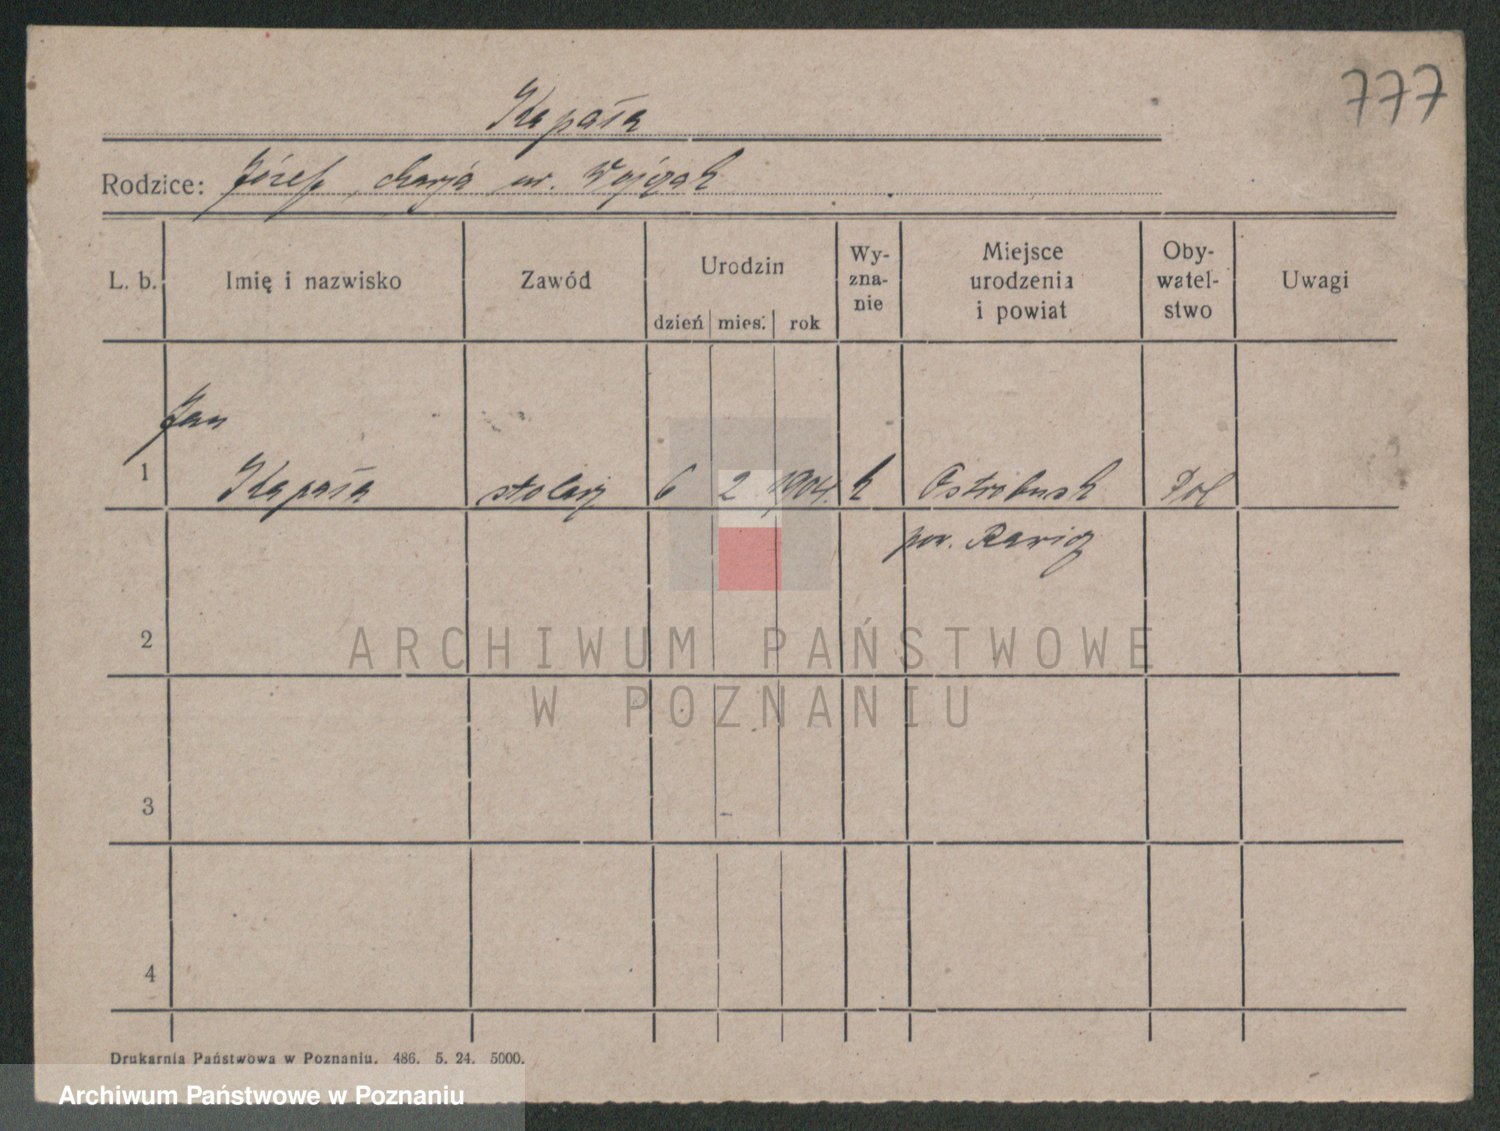 777
Kapała
Rodzice: Józef, Marja ur. Wojczak
L. b. Imię i nazwisko Zawód Urodzin dzień mies. rok Wy-zna-nie Miejsce urodzenia i powiat Oby-watel-stwo Uwagi
Jan
1 Kapała stolarz 6 2 1904. k Ostrobudk Pol
pow. Rawicz
2
3
4
ARCHIWUM PAŃSTWOWE
W POZNANIU
Drukarnia Państwowa w Poznaniu. 486. 5. 24. 5000.
Archiwum Państwowe w Poznaniu